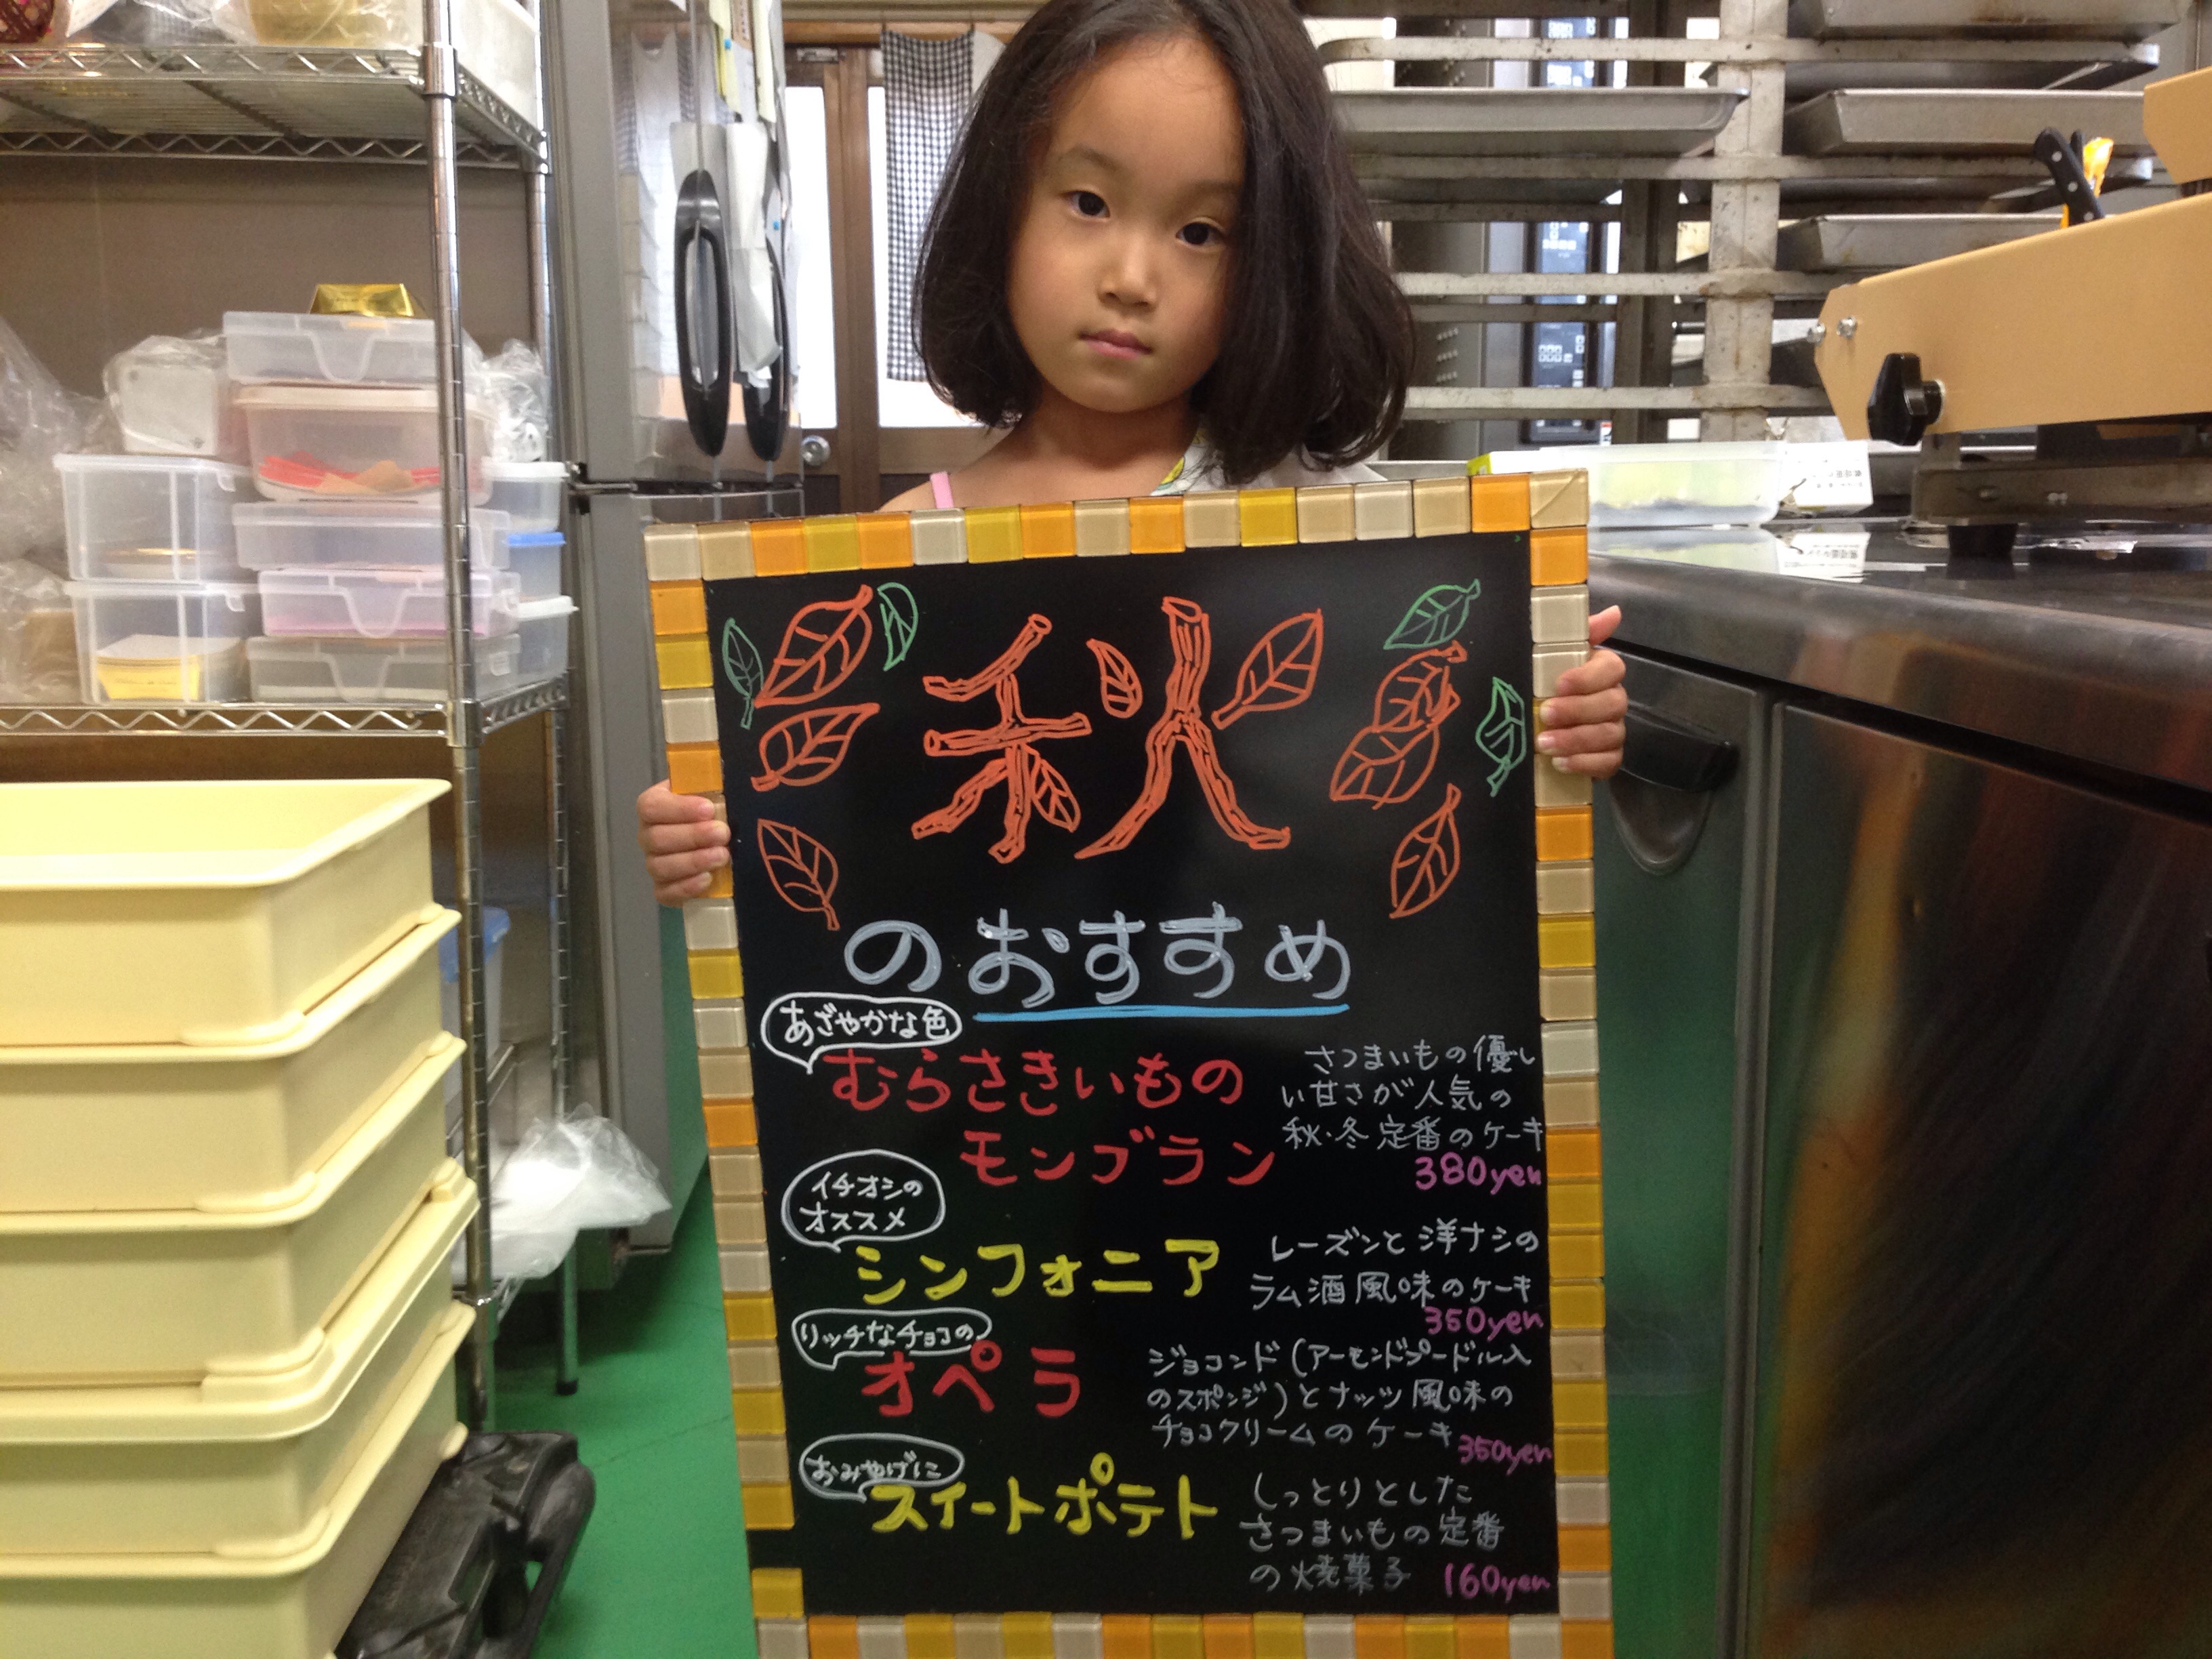 秋
のおすすめ
あざやかな色
むらさきいもの
モンブラン
さつまいもの優し
い甘さが人気の
秋・冬定番のケーキ
380yen
イチオシの
オススメ
シンフォニア
レーズンと洋ナシの
ラム酒風味のケーキ
350yen
リッチなチョコの
オペラ
ジョコンド(アーモンドプードル入
のスポンジ)とナッツ風味の
チョコクリームのケーキ
350yen
おみやげに
スイートポテト
しっとりとした
さつまいもの定番
の焼菓子
160yen